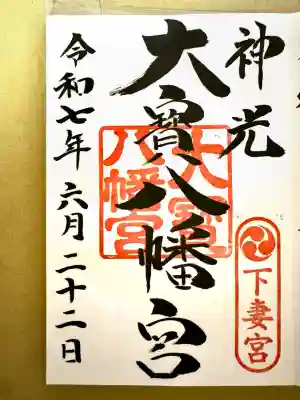 神光
大寳八幡宮
令和七年六月二十二日
大寳
八幡宮
下妻宮